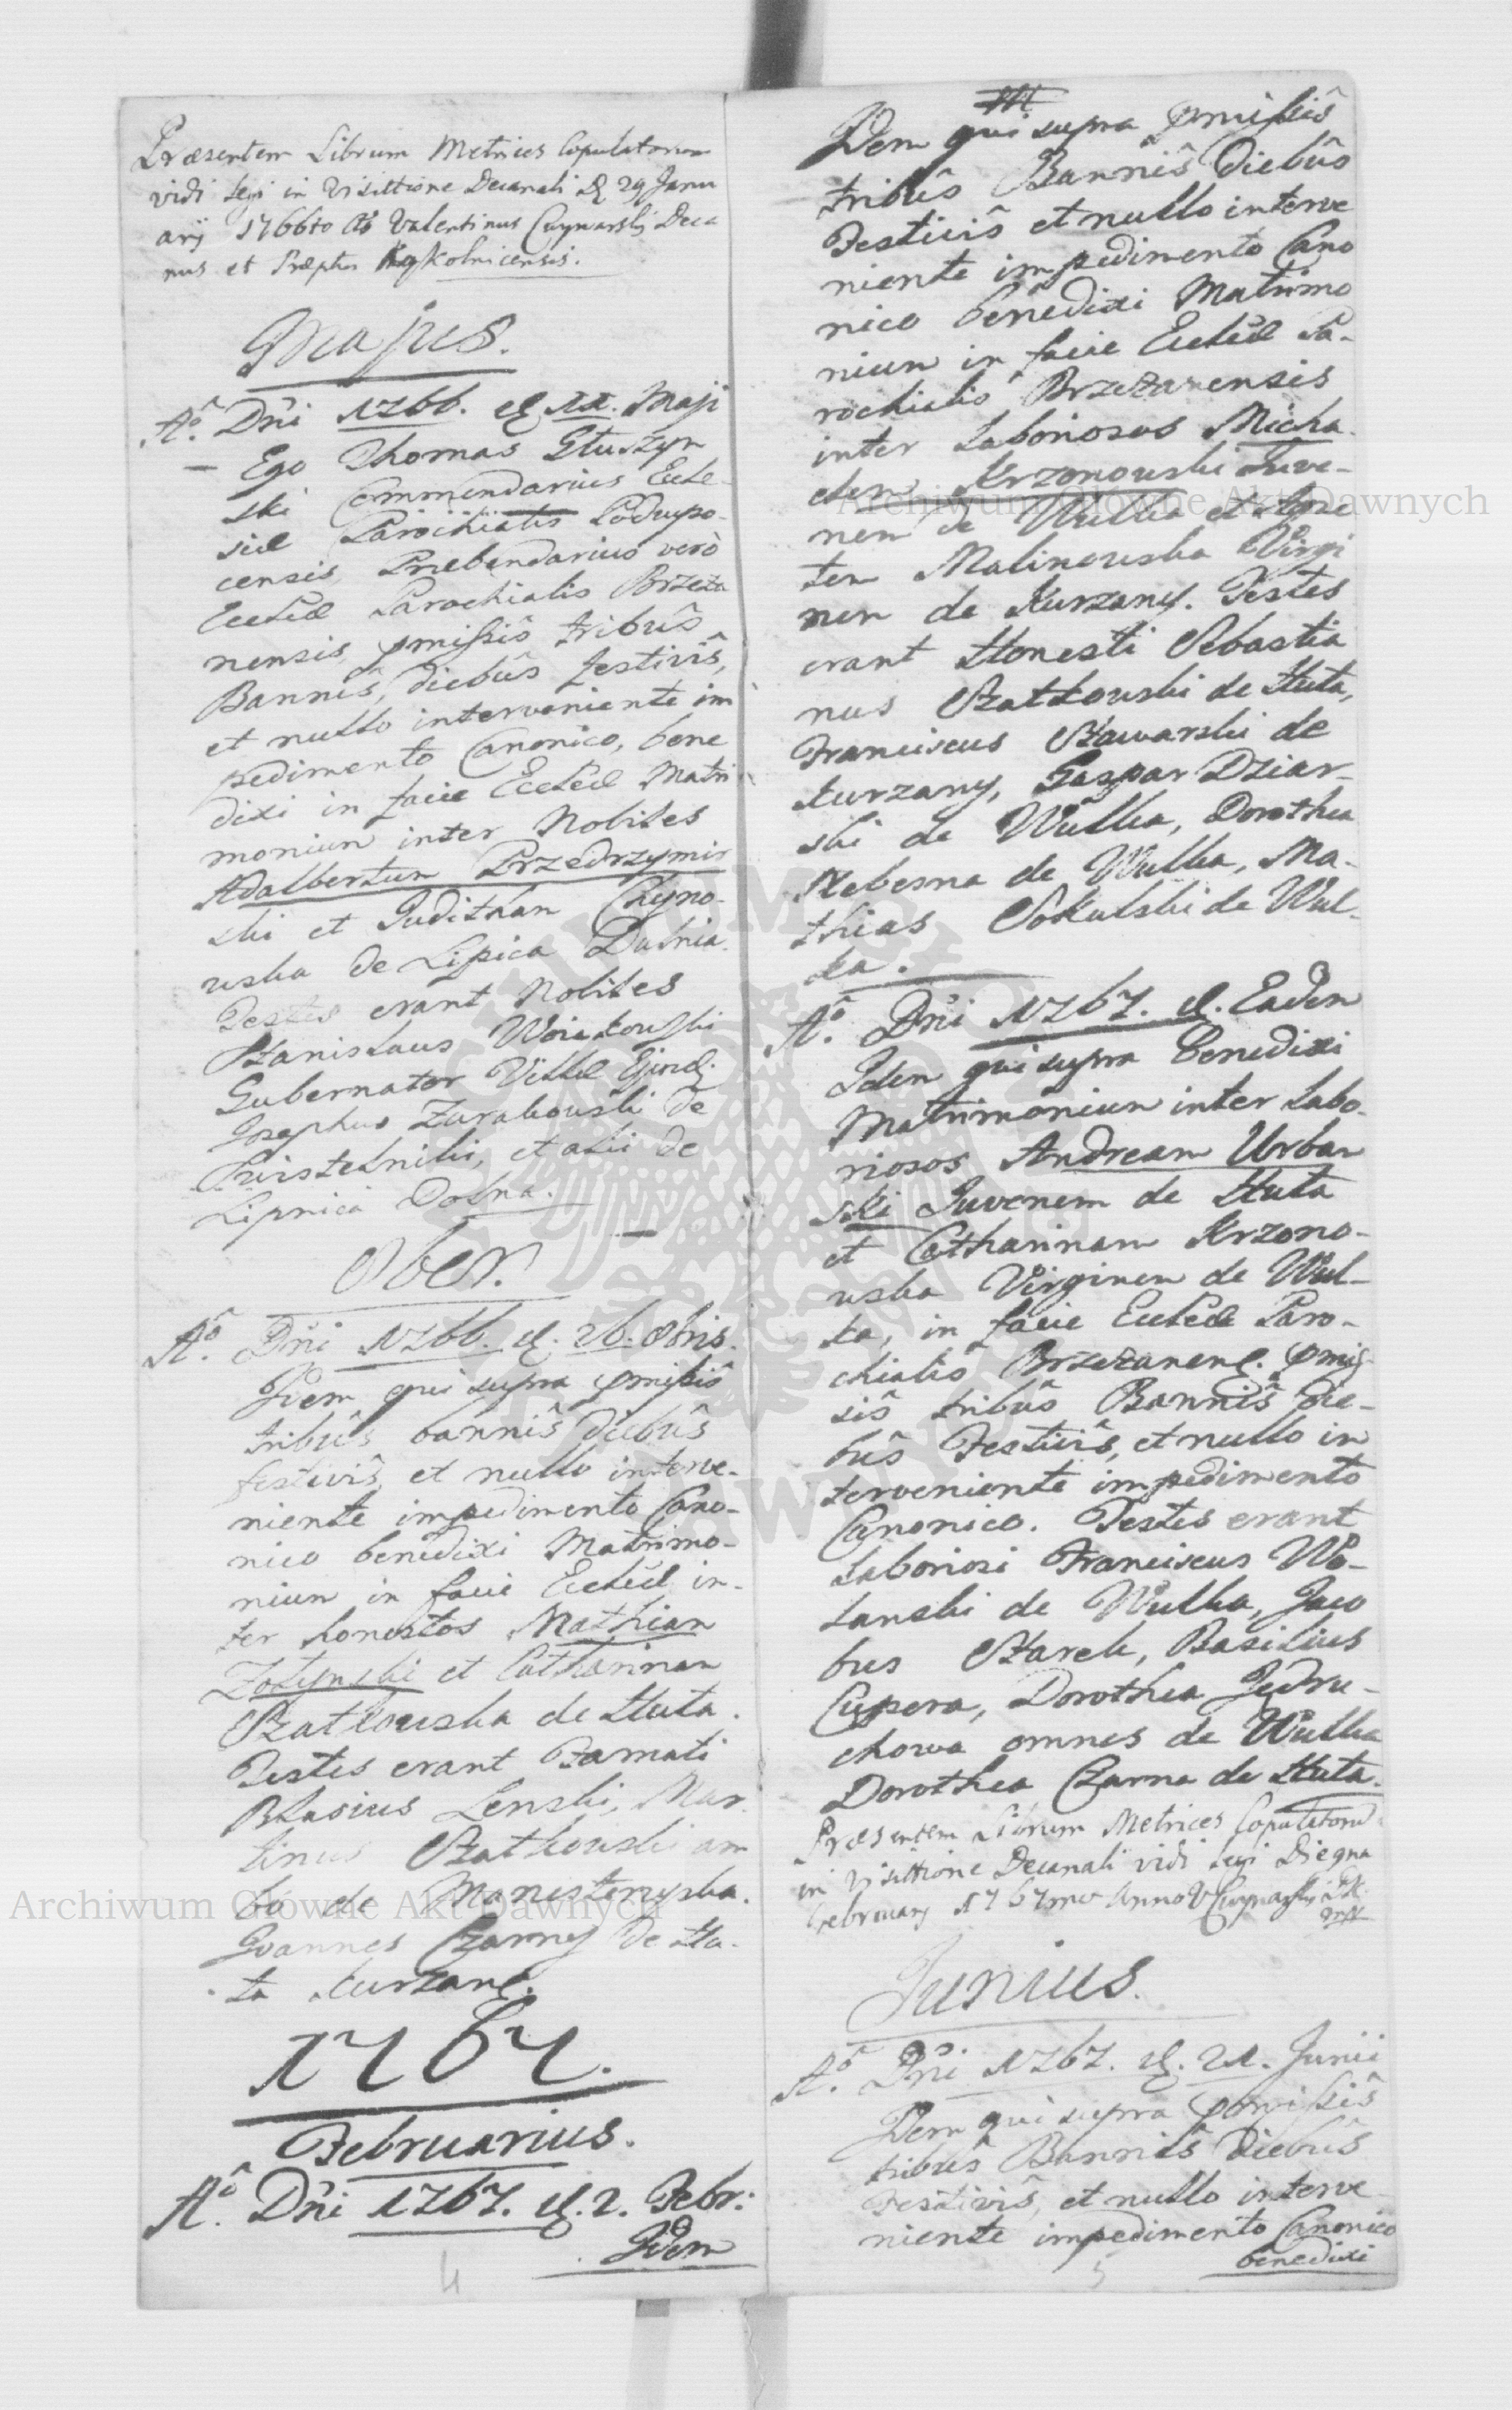 Præsentem Librum Metrices Copulatorum
vidi legi in Visittione Decanali D 29 Janu
arÿ 1766to Ao Valentinus Deca
nus et Præptus
Majus.
Aô. Dñi 1766. d. 11. Maji
Ego Thomas Głuszyn
ski Commendarius Eccle-
siæ Parochialis Podwyso-
censis, Præbendarius verò
Ecclæ Parochialis Brzeża
nensis, pmißiŝ tribuŝ
Banniŝ, diebuŝ festiviŝ,
et nullo interveniente im
pedimento Canonico, bene
dixi in facie Ecclæ Matri
monium inter Nobiles
Adalbertum Przedrzymir
ski et Juditham Chyno-
wska de Lipica Dolnia.
Testes erant Nobiles
Stanislaus
Gubernator Villæ Ejusd.
Josephus Zurakowski de
et alii de
Lipnica Dolna.
8ber.
Aô. Dñi 1766. d. 26. 8bris.
Idem qui supra pmißiŝ
tribuŝ banniŝ diebuŝ
festiviŝ, et nullo interve-
niente impedimento Cano-
nico benedixi Matrimo-
nium in facie Ecclæ in-
ter honestos Mathiam
Zołynski et Catharinam
Szatkowska de Huta.
Testes erant Famati
Blasius Lenski, Mar
tinus Szatkowski am
bo de Manasterzyska.
Joannes Czarny de Hu-
ta Kurzan.
1767.
Februarius.
Aô. Dñi 1767. d. 2. Febr:
Idem
Idem qui supra pmißiŝ
tribuŝ Banniŝ diebuŝ
Festiviŝ et nullo interve
niente impedimento Cano
nico benedixi Matrimo
nium in facie Ecclæ Pa-
rochialis Brzeżanensis
inter Laboriosos Micha-
elem Krzonowski Juve-
nem de Wulka et Agne
tem Malinowska Virgi
nem de Kurzany. Testes
erant Honesti Sebastia
nus Szatkowski de Huta,
Franciscus Stawarski de
Kurzany, Gaspar Dziar-
ski de Wulka, Dorothea
Klebesna de Wulka, Ma-
thias Sokulski de Wul-
ka.
Aô. Dñi 1767. d. Eadem
Idem qui supra Benedixi
Matrimonium inter Labo-
riosos Andream Urban
ski Juvenem de Huta
et Catharinam Krzono-
wska Virginem de Wul-
ka, in facie Ecclæ Paro-
chialis Brzeżanen. pmis-
siŝ tribuŝ Banniŝ die-
buŝ Festiviŝ, et nullo in
terveniente impedimento
Canonico. Testes erant
Laboriosi Franciscus Wo-
lanski de Wulka, Jaco
bus Starek, Basilius
Cupera, Dorothea Jędru-
chowa omnes de Wulka
Dorothea Czarna de Huta.
Præsentem Librum Metrices Copulatorum
in Visittione Decanali vidi legi Die
Februarÿ 1767mo Anno
Junius.
Aô. Dñi 1767. d. 21. Junii
Idem qui supra pmißiŝ
tribuŝ Banniŝ diebuŝ
Festiviŝ, et nullo interve
niente impedimento Canonico
benedixi
4
5
Archiwum Główne Akt Dawnych
Archiwum Główne Akt Dawnych